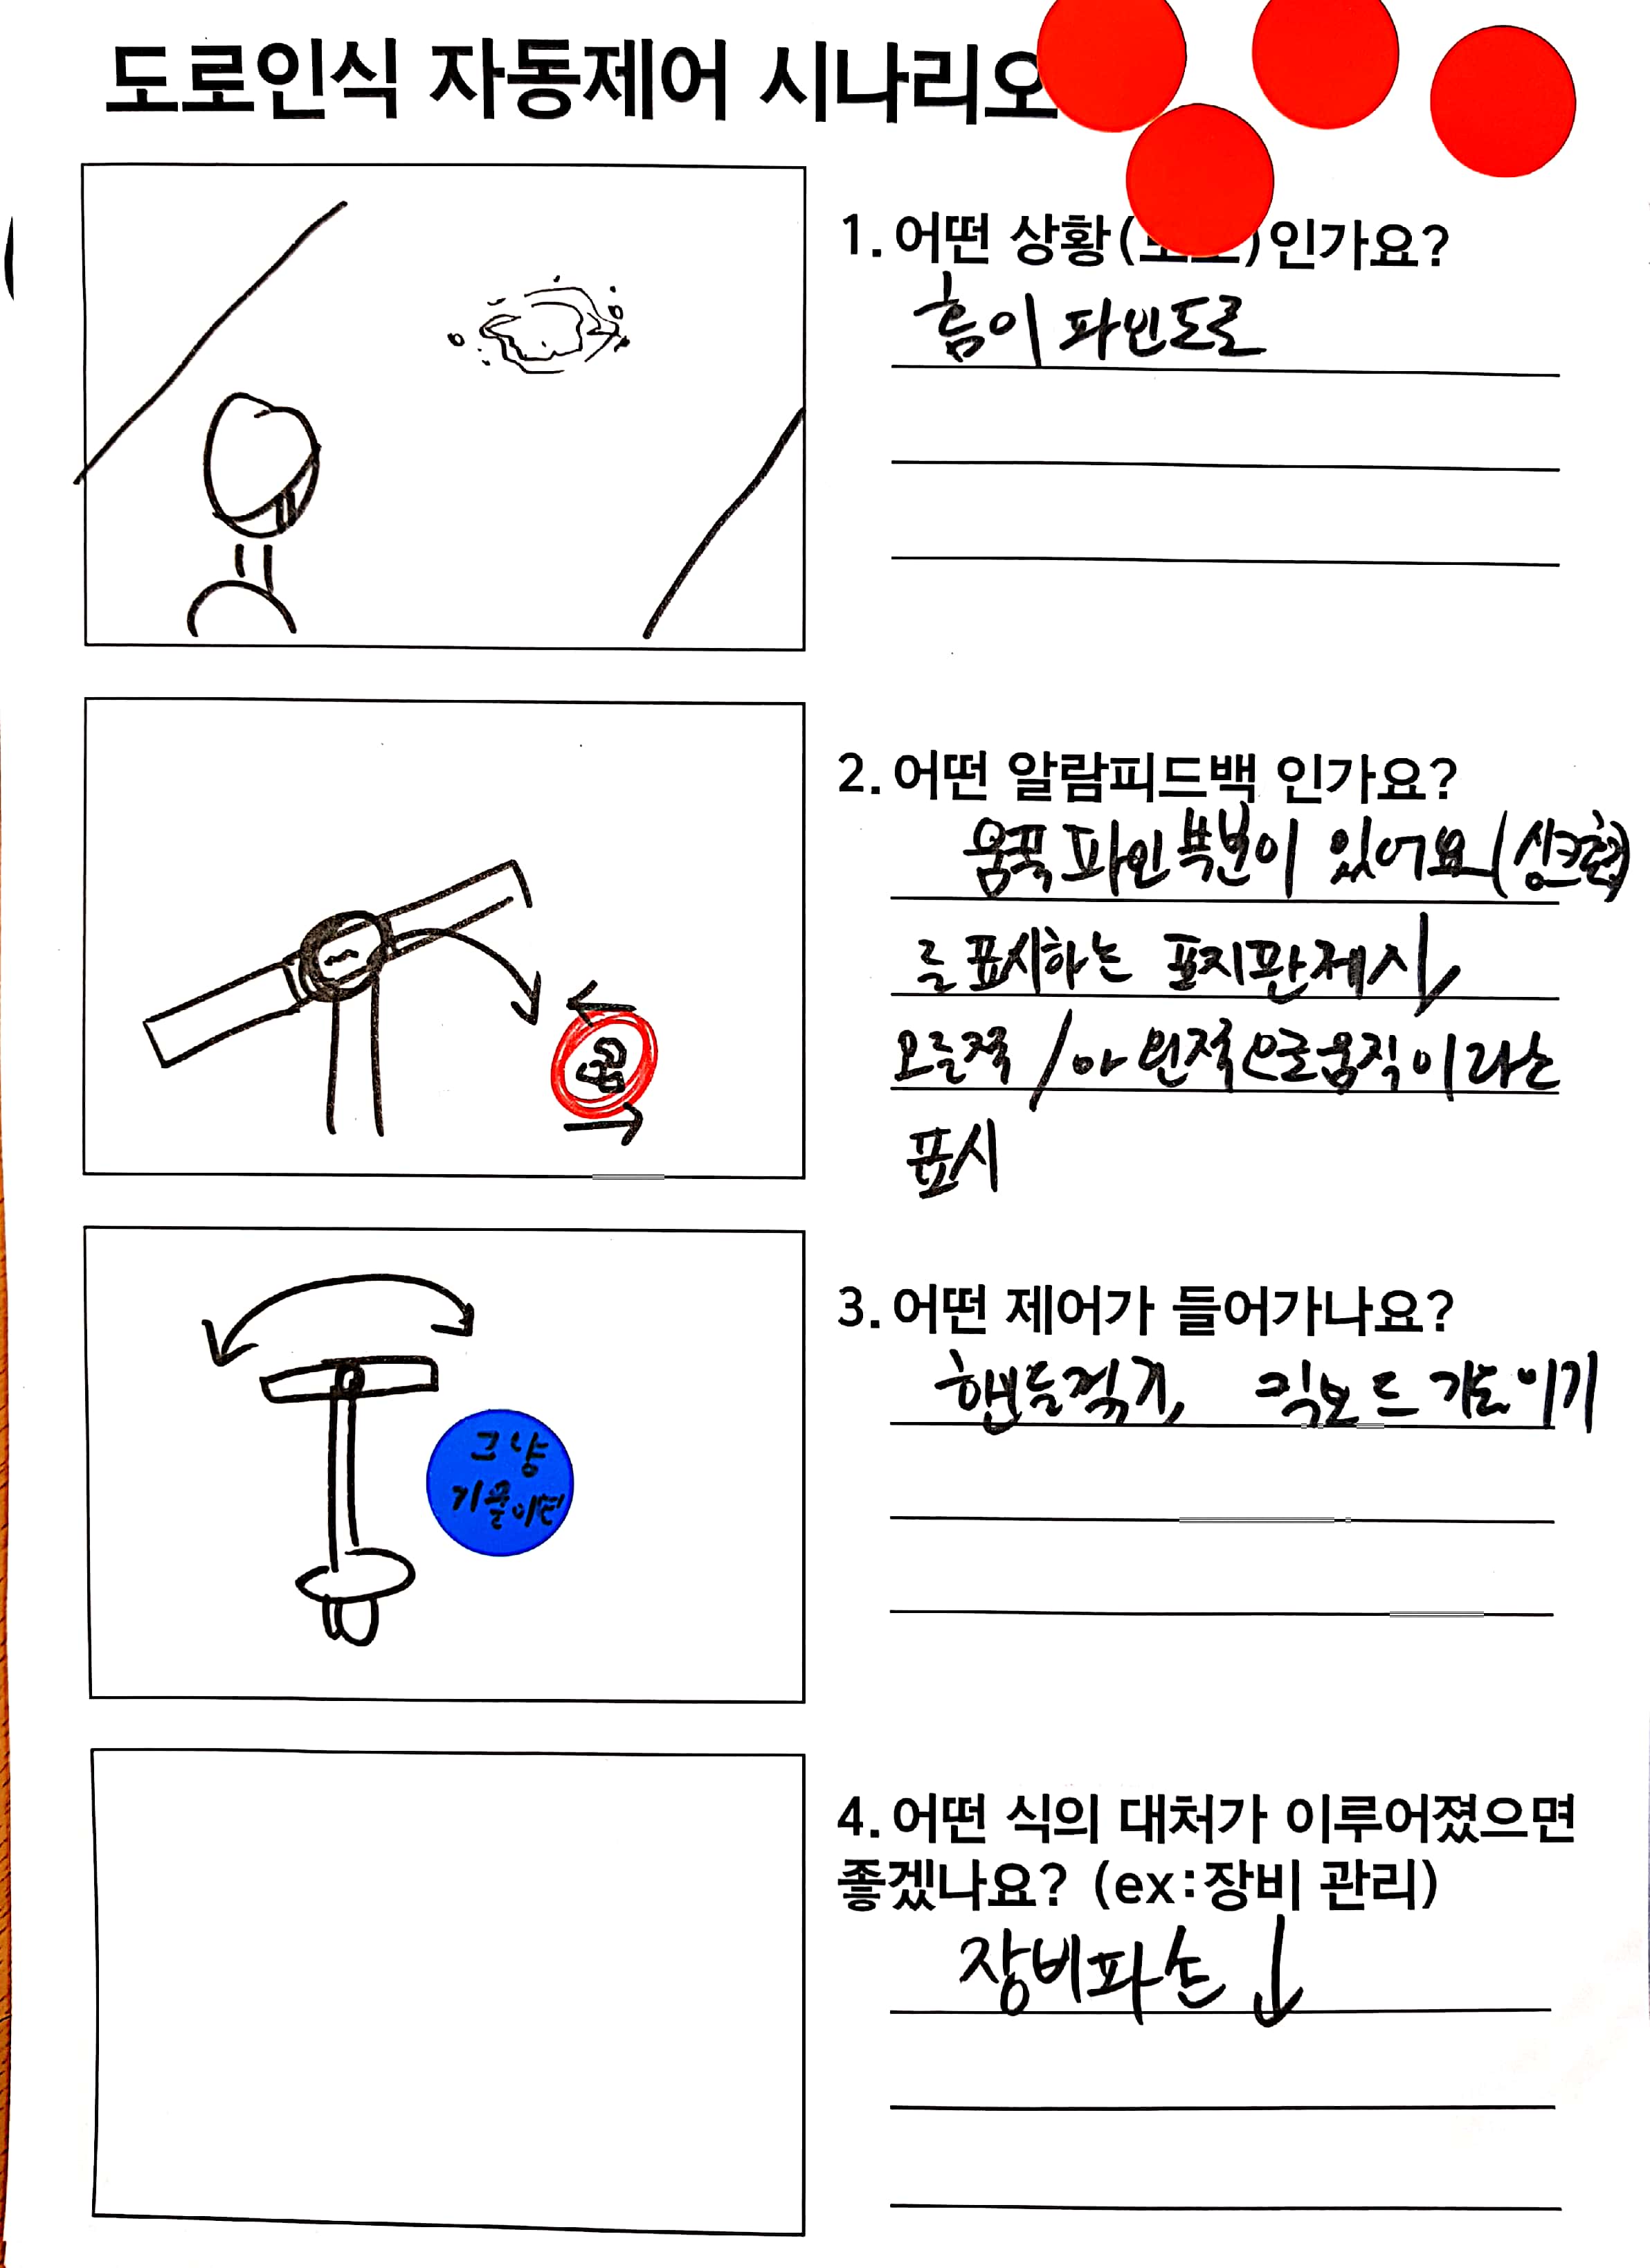 도로인식 자동제어 시나리오
1. 어떤 상황(도로)인가요?
흠이 파인도로
2. 어떤 알람피드백 인가요?
움푹 파인 부분이 있어요(싱크홀)
를 표시하는 표지판제시,
오른쪽 / 아 왼쪽으로움직이라는
표시
3. 어떤 제어가 들어가나요?
핸들꺾기, 킥보드 기울이기
그냥
기울이면
4. 어떤 식의 대처가 이루어졌으면
좋겠나요? (ex:장비 관리)
장비파손 ↓